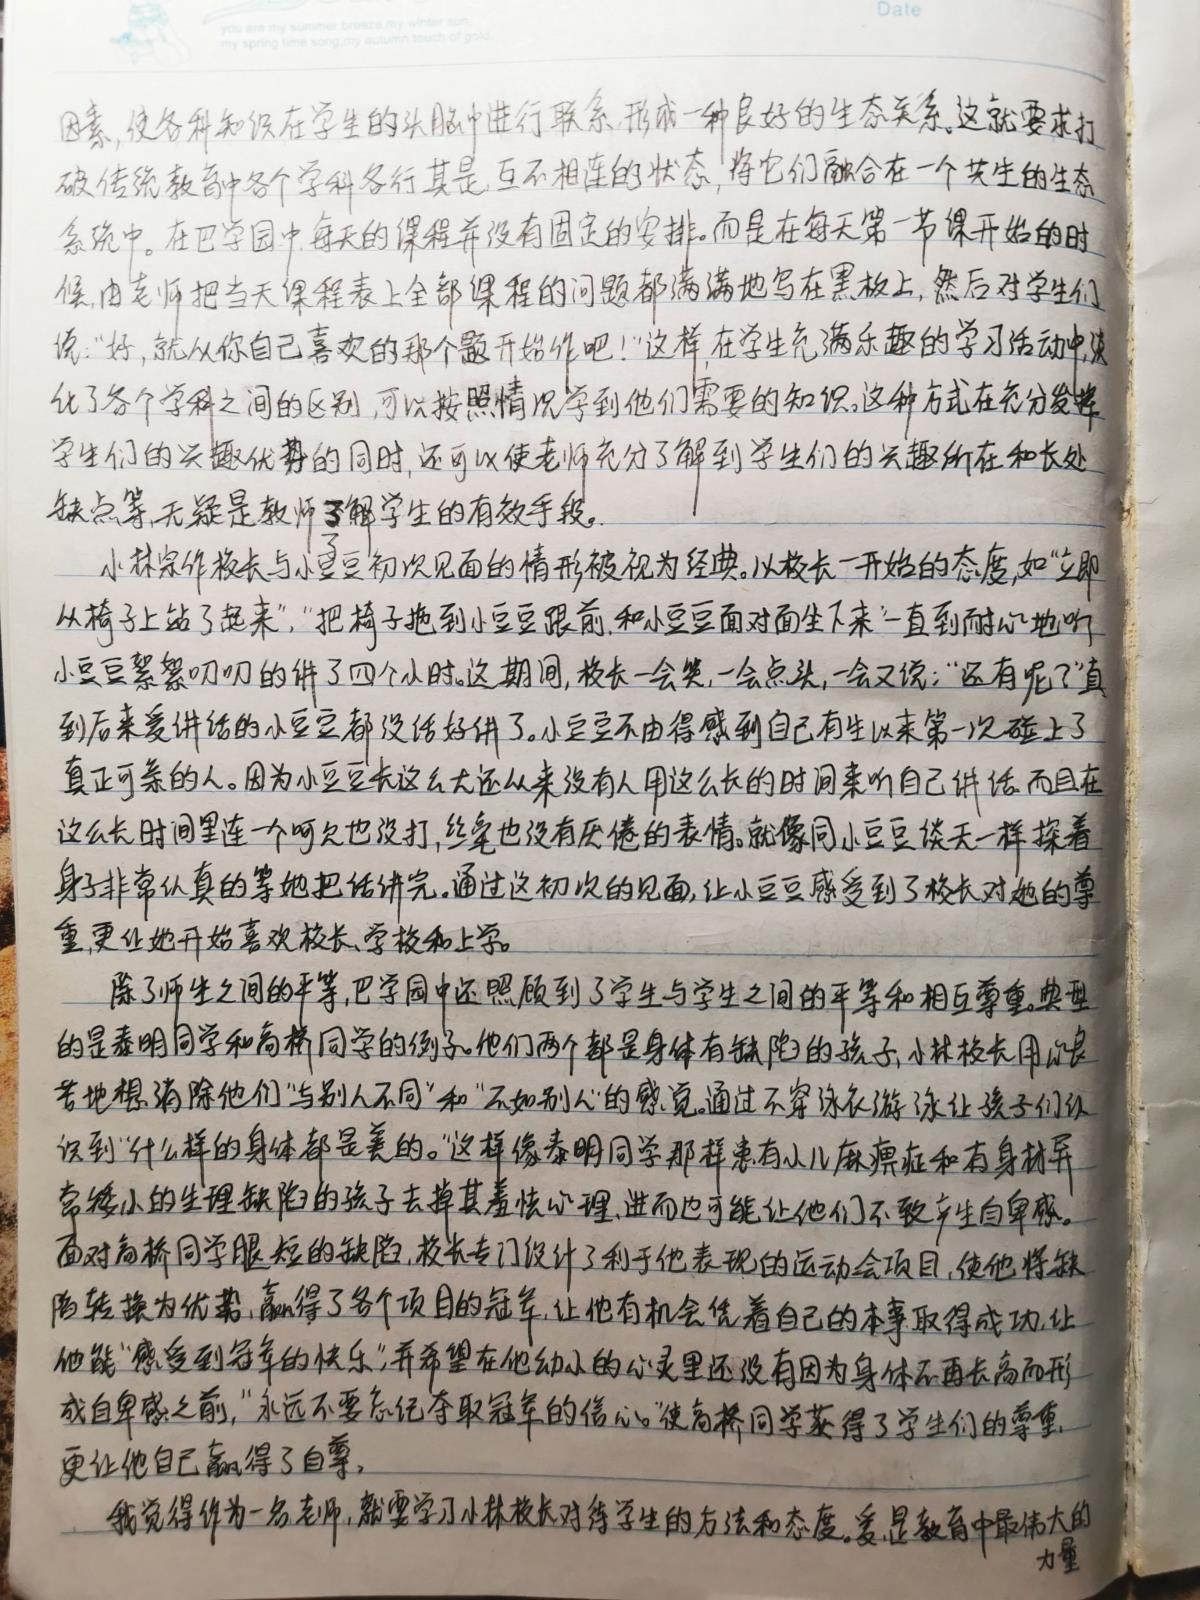 you are my summer breeze,my winter sun,
my spring time song,my autumn touch of gold.
Date
因素,使各科知识在学生的头脑中进行联系,形成一种良好的生态关系。这就要求打
破传统教育中各个学科各行其是,互不相连的状态,将它们融合在一个共生的生态
系统中。在巴学园中,每天的课程并没有固定的安排。而是在每天第一节课开始的时
候,由老师把当天课程表上全部课程的问题都满满地写在黑板上,然后对学生们
说:“好,就从你自己喜欢的那个题开始作吧!”这样,在学生充满乐趣的学习活动中,淡
化了各个学科之间的区别,可以按照情况学到他们需要的知识。这种方式在充分发挥
学生们的兴趣优势的同时,还可以使老师充分了解到学生们的兴趣所在和长处
缺点等,无疑是教师了解学生的有效手段。
小林宗作校长与小豆豆初次见面的情形被视为经典。从校长一开始的态度,如“立即
从椅子上站了起来”,“把椅子拖到小豆豆跟前,和小豆豆面对面坐下来”一直到耐心地听
小豆豆絮絮叨叨的讲了四个小时。这期间,校长一会笑,一会点头,一会又说:“还有呢?”直
到后来爱讲话的小豆豆都没话好讲了。小豆豆不由得感到自己有生以来第一次碰上了
真正可亲的人。因为小豆豆长这么大还从来没有人用这么长的时间来听自己讲话,而且在
这么长时间里连一个呵欠也没打,丝毫也没有厌倦的表情。就像同小豆豆谈天一样探着
身子非常认真的等她把话讲完。通过这初次的见面,让小豆豆感受到了校长对她的尊
重,更让她开始喜欢校长、学校和上学。
除了师生之间的平等,巴学园中还照顾到了学生与学生之间的平等和相互尊重。典型
的是泰明同学和高桥同学的例子。他们两个都是身体有缺陷的孩子,小林校长用心良
苦地想消除他们“与别人不同”和“不如别人”的感觉。通过不穿泳衣游泳让孩子们认
识到“什么样的身体都是美的。”这样像泰明同学那样患有小儿麻痹症和有身材异
常矮小的生理缺陷的孩子去掉其羞怯心理,进而也可能让他们不致产生自卑感。
面对高桥同学腿短的缺陷,校长专门设计了利于他表现的运动会项目,使他将缺
陷转换为优势,赢得了各个项目的冠军,让他有机会凭着自己的本事取得成功,让
他能“感受到冠军的快乐”,并希望在他幼小的心灵里还没有因为身体不再长高而形
成自卑感之前,“永远不要忘记夺取冠军的信心。”使高桥同学获得了学生们的尊重,
更让他自己赢得了自尊。
我觉得作为一名老师,就要学习小林校长对待学生的方法和态度。爱,是教育中最伟大的
力量